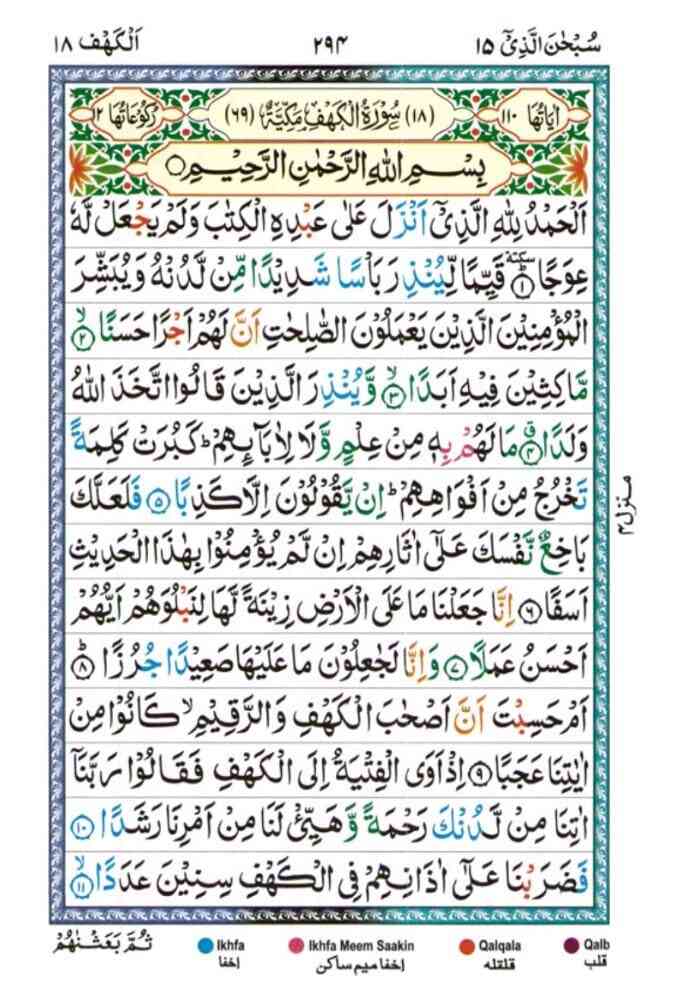 سُبْحٰنَ الَّذِیْۤ ١٥ ٢٩۴ اَلْكَهْف ١٨
اٰیَاتُهَا ١١٠ (١٨) سُوْرَةُ الْكَهْفِ مَكِّیَّةٌ (٦٩) رُكُوْعَاتُهَا ١٢
بِسْمِ اللّٰهِ الرَّحْمٰنِ الرَّحِیْمِ ○
اَلْحَمْدُ لِلّٰهِ الَّذِیْۤ اَنْزَلَ عَلٰی عَبْدِهِ الْكِتٰبَ وَلَمْ یَجْعَلْ لَّهٗ
عِوَجًا ؕ سكتة ﴿١﴾ قَیِّمًا لِّیُنْذِرَ بَاْسًا شَدِیْدًا مِّنْ لَّدُنْهُ وَیُبَشِّرَ
الْمُؤْمِنِیْنَ الَّذِیْنَ یَعْمَلُوْنَ الصّٰلِحٰتِ اَنَّ لَهُمْ اَجْرًا حَسَنًا ۙ﴿٢﴾
مَّاكِثِیْنَ فِیْهِ اَبَدًا ۙ﴿٣﴾ وَّیُنْذِرَ الَّذِیْنَ قَالُوا اتَّخَذَ اللّٰهُ
وَلَدًا ۗ﴿۴﴾ مَا لَهُمْ بِهٖ مِنْ عِلْمٍ وَّلَا لِاٰبَآىِٕهِمْ ؕ كَبُرَتْ كَلِمَةً
تَخْرُجُ مِنْ اَفْوَاهِهِمْ ؕ اِنْ یَّقُوْلُوْنَ اِلَّا كَذِبًا ﴿٥﴾ فَلَعَلَّكَ
بَاخِعٌ نَّفْسَكَ عَلٰۤی اٰثَارِهِمْ اِنْ لَّمْ یُؤْمِنُوْا بِهٰذَا الْحَدِیْثِ
اَسَفًا ﴿٦﴾ اِنَّا جَعَلْنَا مَا عَلَی الْاَرْضِ زِیْنَةً لَّهَا لِنَبْلُوَهُمْ اَیُّهُمْ
اَحْسَنُ عَمَلًا ﴿٧﴾ وَاِنَّا لَجٰعِلُوْنَ مَا عَلَیْهَا صَعِیْدًا جُرُزًا ؕ﴿٨﴾
اَمْ حَسِبْتَ اَنَّ اَصْحٰبَ الْكَهْفِ وَالرَّقِیْمِ ۙ كَانُوْا مِنْ
اٰیٰتِنَا عَجَبًا ﴿٩﴾ اِذْ اَوَی الْفِتْیَةُ اِلَی الْكَهْفِ فَقَالُوْا رَبَّنَاۤ
اٰتِنَا مِنْ لَّدُنْكَ رَحْمَةً وَّهَیِّئْ لَنَا مِنْ اَمْرِنَا رَشَدًا ﴿١٠﴾
فَضَرَبْنَا عَلٰۤی اٰذَانِهِمْ فِی الْكَهْفِ سِنِیْنَ عَدَدًا ۙ﴿١١﴾
منزل ۴
ثُمَّ بَعَثْنٰهُمْ
Ikhfa اخفا
Ikhfa Meem Saakin اخفا میم ساکن
Qalqala قلقله
Qalb قلب